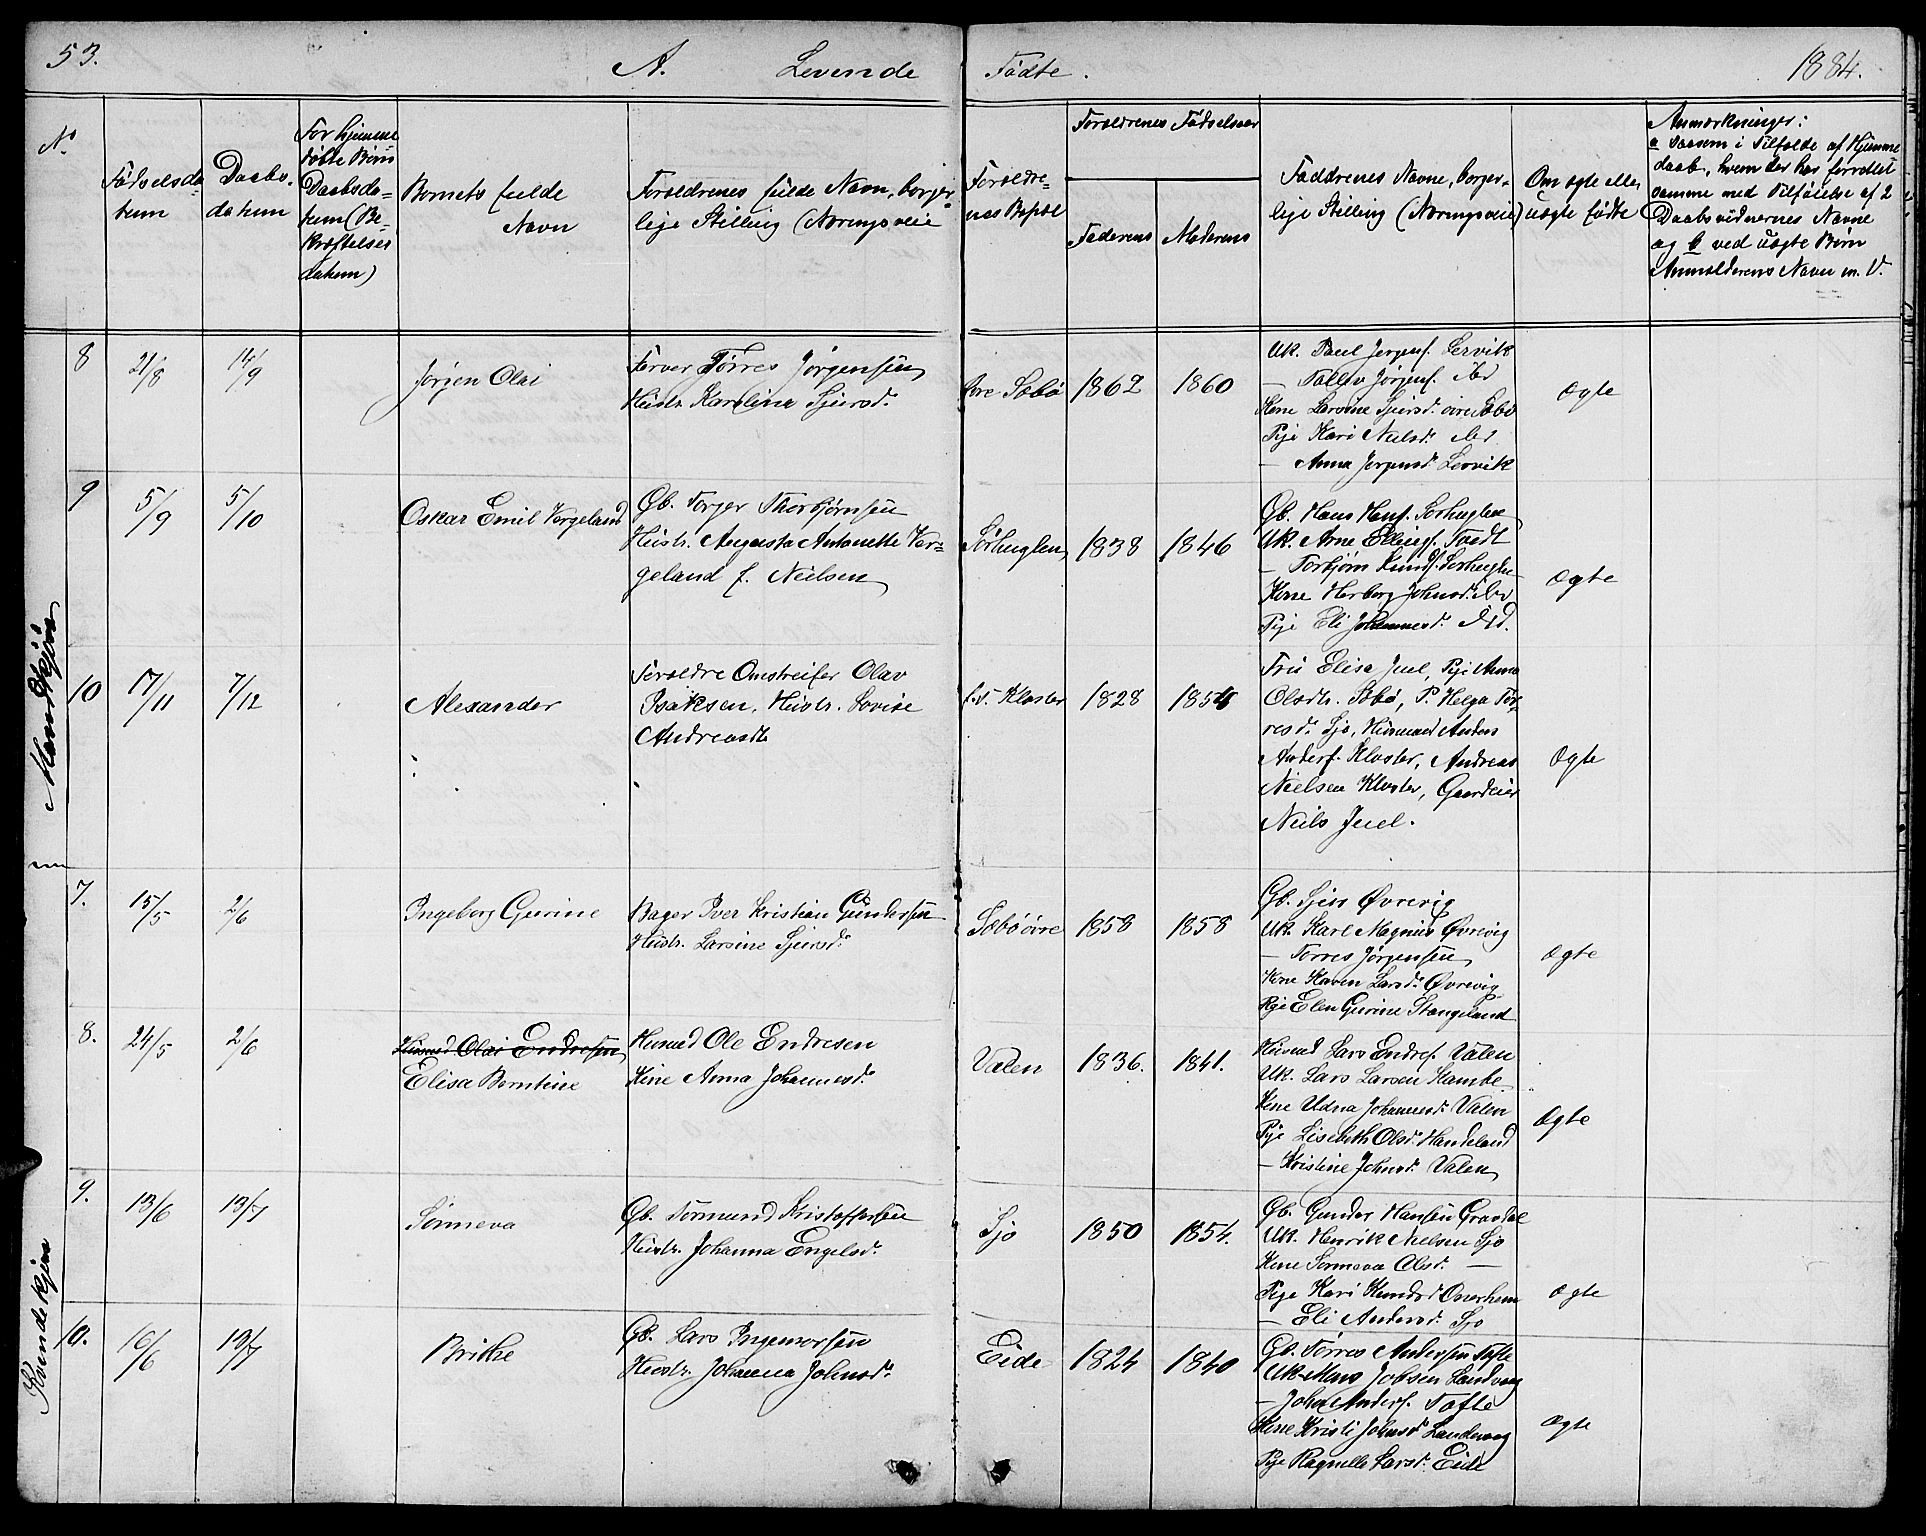 53.
A. Levende Fødte. 1884.
No
Fødselsda
tum
Daabs-
datum
For hjemme
døbte Børn
Daabsda-
tum (Be-
kræftelses
datum)
Barnets fulde
Navn
Forældrenes fulde Navn, borger-
lige Stilling (Næringsveie
Forældre-
nes Bopæl
Forældrenes Fødselsaar
Faderens
Moderens
Faddrenes Navne, borger-
lige Stilling (Næringsveie)
Om ægte eller
uægte fødte
Anmærkninger:
a saasom i Tilfælde af Hjemme
daab, hvem der har forrettet
samme med Tilføielse af 2
Daabsvidnernes Navne
og b ved uægte Børn
Anmelderens Navn m. V.
Mandkjøn
8
21/8
14/9
Jørgen Olai
Farver Tørres Jørgensen
Hustr. Karoline Sjursd.
øvre Sæbø
1862
1860
Uk. Paul Jørgens. Lervik
— Tollev Jørgens. ibd
Kone Larsine Sjursd. øvre Sæbø
Pige Kari Nielsd. ibd
— Anna Jørgensd. Lervik
Ægte
9
5/9
5/10
Oskar Emil Vergeland
Gb. Torger Thorbjørnsen
Hustr. Augusta Antonette Ver-
geland f. Nielsen
Sørhuglen
1838
1846
Gb. Hans Hans. Sørhuglen
Uk. Arne Ellings. Tvedt
— Torbjørn Knuds. Sørhuglen
Kone Herborg Johnsd. ibd
Pige Eli Johannesd. ibd.
Ægte
10
17/11
7/12
Alexander
Forældre Omstreifer Olav
Isaksen, Hustr. Lovise
Andreasdt
f.t. Kloster
1828
1854
Fru Elisa Juel, Pige Anna
Olsdtr. Sæbø, P. Helga Tør-
resd. Sjo, Husmand Anders
Anders. Kloster, Andreas
Nielsen Kloster, Gaardeier
Niels Juel.
Ægte
7.
15/5
2/6
Ingeborg Gurine
Bager Iver Kristian Gundersen
Hustr. Larsine Sjursd.
Sæbøøvre
1858
1858
Gb. Sjur Øvrevig
Uk. Karl Magnus Øvrevig
— Tørres Jørgensen
Kone Karen Larsd. Øvrevig
Pige Elen Gurine Stangeland
Ægte
8.
24/5
2/6
Husmd Olai Endresen
Elisa Berntine
Husmd Ole Endresen
Kone Anna Johannesd.
Valen
1836.
1841.
Husmd Lars Endres. Valen
Uk. Lars Larsen Stambe
Kone Udna Johannesd. Valen
Pige Lisebeth Olsd. Handeland
— Kristine Johnsd. Valen
Ægte
Kvindekjøn
9.
13/6
13/7
Sønneva
Gb. Tormund Kristoffersen
Hustr. Johanna Engelsd.
Sjo
1850
1854.
Gb. Gunder Hansen Gravdal
Uk. Henrik Nielsen Sjo
Kone Sønneva Olsd. —
Pige Kari Knudsd Onarhem
— Eli Andersd. Sjo
Ægte
10.
16/6
13/7
Brithe
Gb. Lars Ingemorsen
Hustr. Johanna Johnsd.
Eide
1824
1840
Gb. Tørres Andersen Tofte
Uk. Mons Jobsen Landvaag
— John Anders. Tofte
Kone Kristi Johnsd Landevaag
Pige Ragnilla Larsd. Eide
Ægte